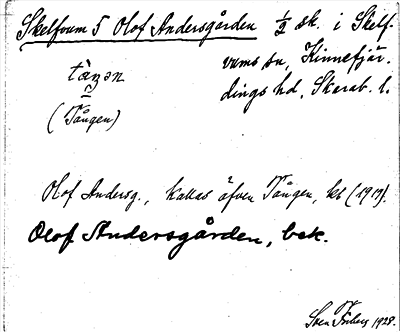 Skelfvum 5 Olof Andersgården 1/2 sk. i Skelf-
vums sn, Kinnefjär-
dings hd, Skarab. l.
(Tången)
Olof Andersg., kallas äfven Tången, kl (1917).
Olof Andersgården, bek.
Sven 1928.